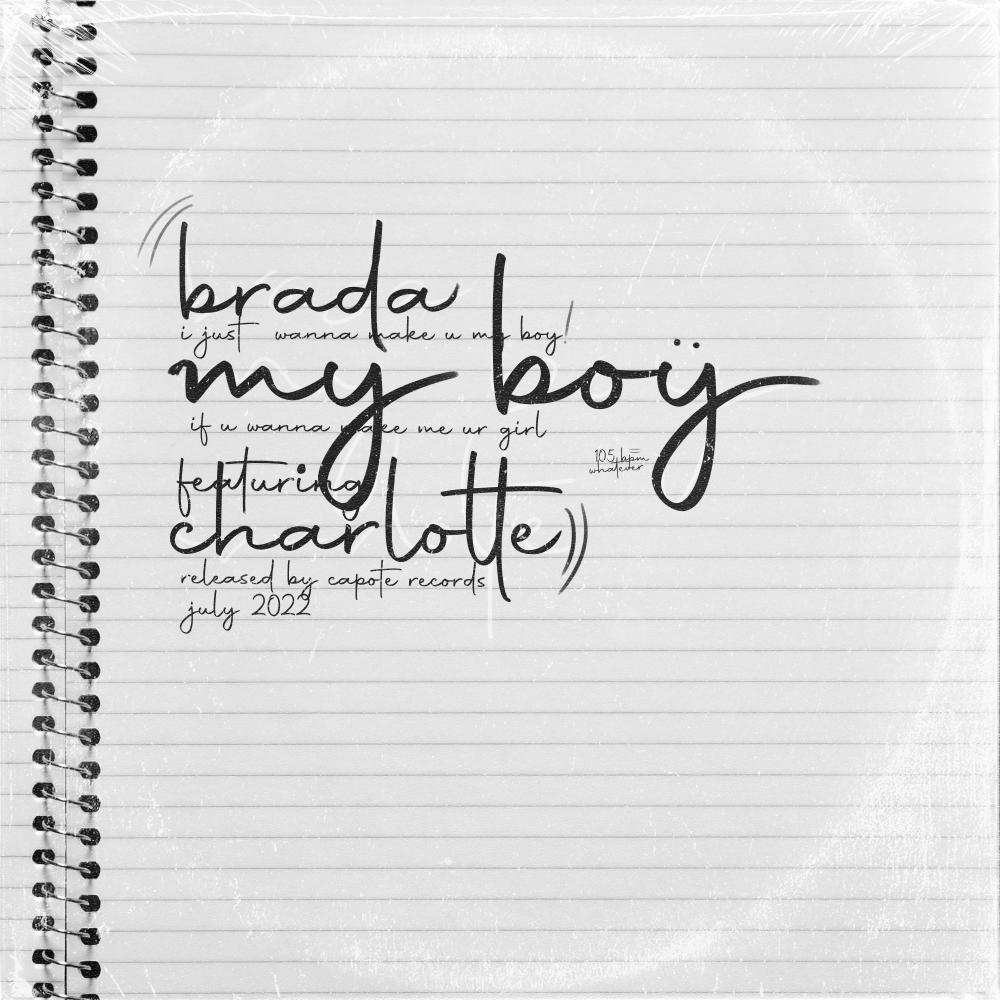 brada
i just wanna make u my boy!
my boÿ
if u wanna make me ur girl
105 bpm
whatever
featuring
charlotte
released by capote records
july 2022